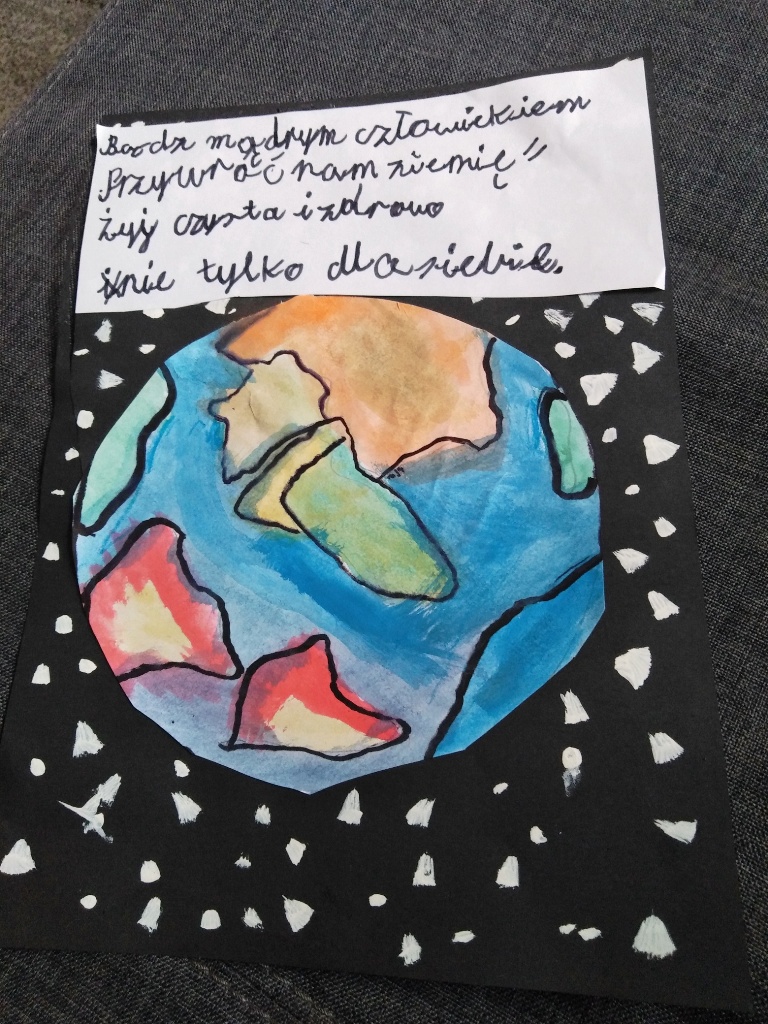 Bądź mądrym człowiekiem
Przywróć nam ziemię"
żyj czysta i zdrowo
i nie tylko dla siebie.